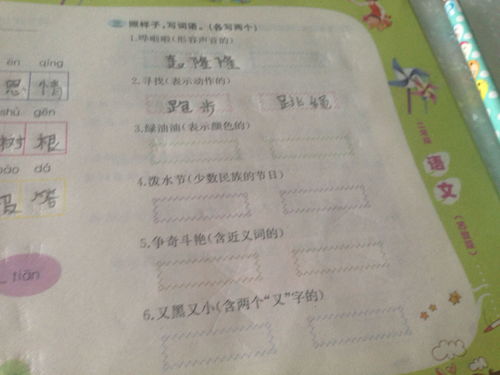 ēn qíng
恩 情
shù gēn
树 根
dá
答
tián
三、照样子,写词语。(各写两个)
1.哗啦啦(形容声音的)
轰隆隆
2.寻找(表示动作的)
跑步 跳绳
3.绿油油(表示颜色的)
4.泼水节(少数民族的节日)
5.争奇斗艳(含近义词的)
6.又黑又小(含两个“又”字的)
语文